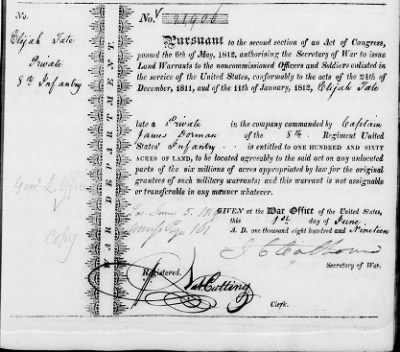 No.
No. 21906
Elijah Tate
Private
8th Infantry
WAR DEPARTMENT.
Pursuant to the second section of an Act of Congress,
passed the 6th of May, 1812, authorising the Secretary of War to issue
Land Warrants to the noncommissioned Officers and Soldiers enlisted in
the service of the United States, conformably to the acts of the 24th of
December, 1811, and of the 11th of January, 1812, Elijah Tate
late a Private in the company commanded by Captain
James Dorman of the 8th Regiment United
States' Infantry
is entitled to ONE HUNDRED AND SIXTY
ACRES OF LAND, to be located agreeably to the said act on any unlocated
parts of the six millions of acres appropriated by law for the original
grantees of such military warrants; and this warrant is not assignable
or transferable in any manner whatever.
Copy
GIVEN at the War Office of the United States,
this day of June
A. D. one thousand eight hundred and Nineteen
J C Calhoun
Secretary of War.
Registered.
Nat Cutting
Clerk.